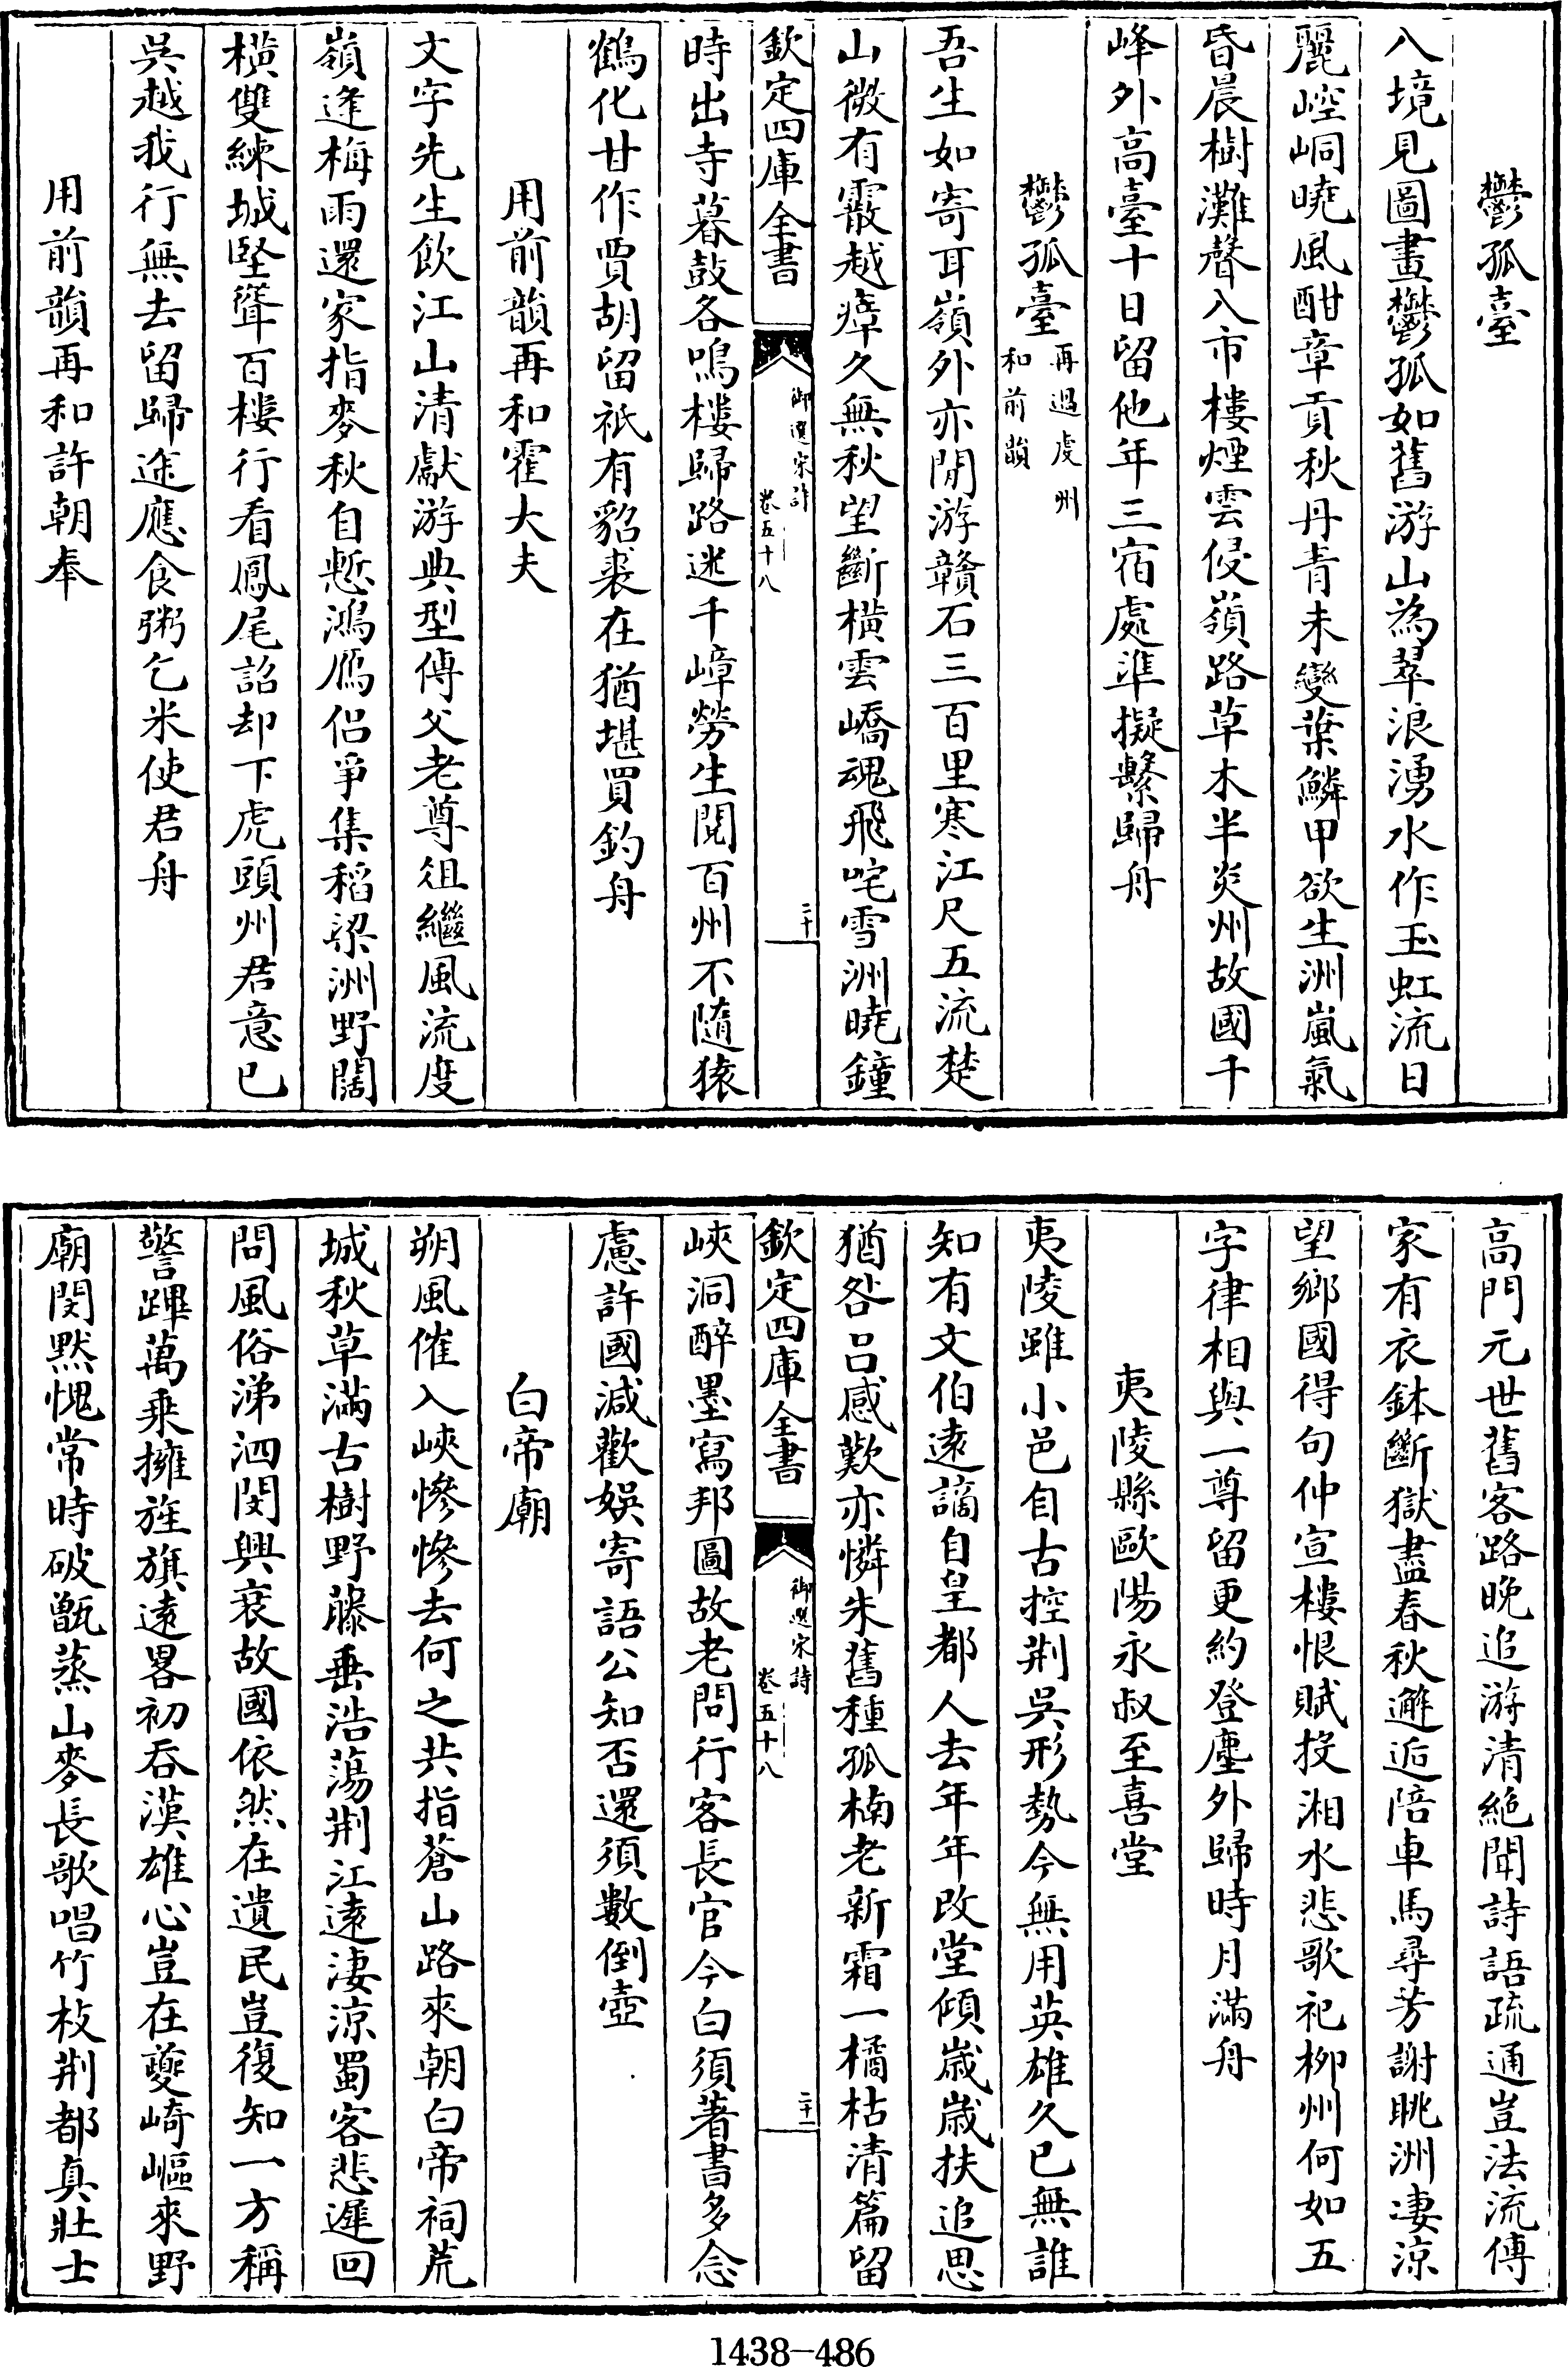 鬱孤臺
八境見圖畫鬱孤如舊游山為翠浪湧水作玉虹流日
麗崆峒曉風酣章貢秋丹青未變葉鱗甲欲生洲嵐氣
昏晨樹灘聲入市樓煙雲侵嶺路草木半炎州故國千
峰外高臺十日留他年三宿處準擬繫歸舟
鬱孤臺再過虔州和前韻
吾生如寄耳嶺外亦閒游贛石三百里寒江尺五流楚
山微有霰越瘴久無秋望斷橫雲嶠魂飛咤雪洲曉鐘
欽定四庫全書 御選宋詩 卷五十八 二十
時出寺暮鼓各鳴樓歸路迷千嶂勞生閱百州不隨猿
鶴化甘作賈胡留祇有貂裘在猶堪買釣舟
用前韻再和霍大夫
文字先生飲江山清獻游典型傳父老尊俎繼風流度
嶺逢梅雨還家指麥秋自慙鴻鴈侶爭集稻粱洲野闊
橫雙練城堅聳百樓行看鳳尾詔却下虎頭州君意已
吳越我行無去留歸途應食粥乞米使君舟
用前韻再和許朝奉
高門元世舊客路晚追游清絶聞詩語疏通豈法流傳
家有衣鉢斷獄盡春秋邂逅陪車馬尋芳謝朓洲凄涼
望鄉國得句仲宣樓恨賦投湘水悲歌祀柳州何如五
字律相與一尊留更約登塵外歸時月滿舟
夷陵縣歐陽永叔至喜堂
夷陵雖小邑自古控荆吳形勢今無用英雄久已無誰
知有文伯遠謫自皇都人去年年改堂傾嵗嵗扶追思
猶咎呂感歎亦憐朱舊種孤楠老新霜一橘枯清篇留
欽定四庫全書 御選宋詩 卷五十八 二十一
峽洞醉墨寫邦圖故老問行客長官今白須著書多念
慮許國減歡娛寄語公知否還須數倒壺
白帝廟
朔風催入峽慘慘去何之共指蒼山路來朝白帝祠荒
城秋草滿古樹野藤垂浩蕩荆江遠淒涼蜀客悲遲回
問風俗涕泗閔興衰故國依然在遺民豈復知一方稱
警蹕萬乗擁旌旗遠畧初吞漢雄心豈在夔崎嶇來野
廟閔默愧常時破甑蒸山麥長歌唱竹枝荆都真壯士
1438-486